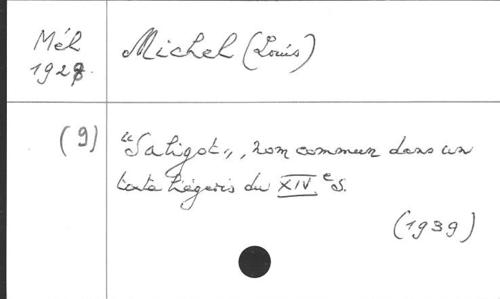 Mél Michel (Louis)
1928.
(9) "Saligot", nom commun dans un
texte liégeois du XIV e s.
(1939)